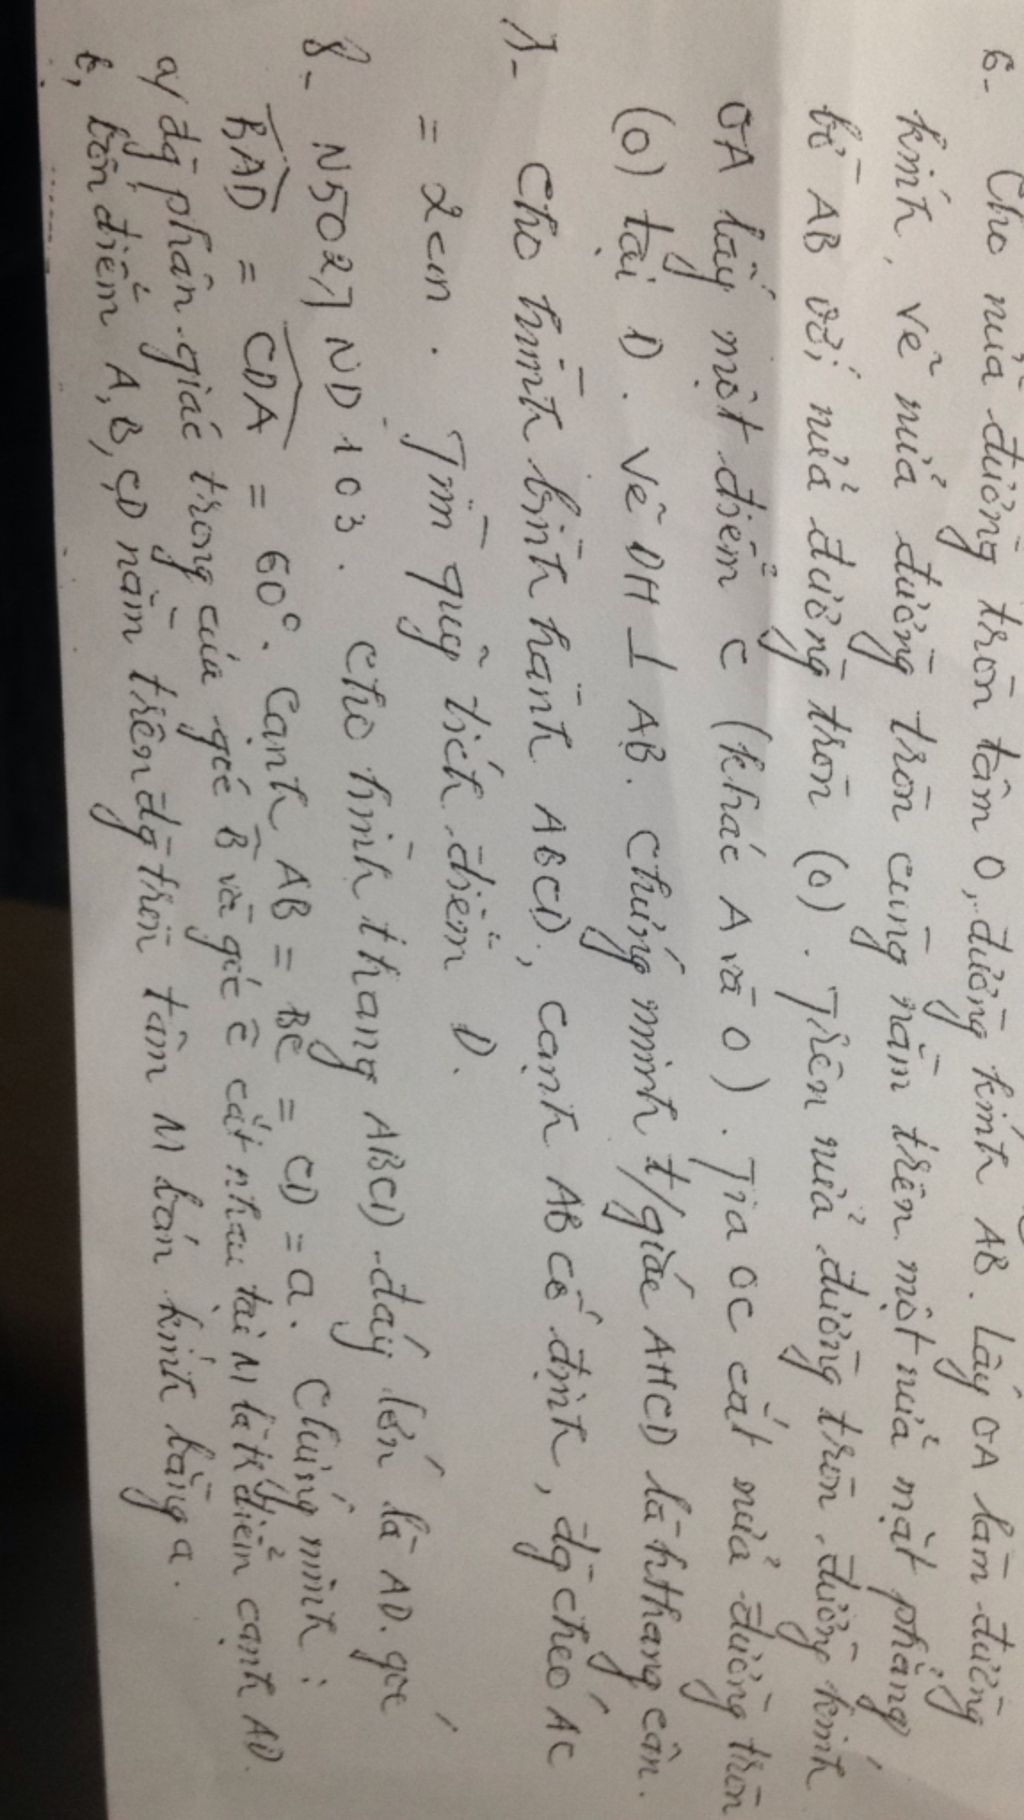 6- Cho nửa đường tròn tâm O, đường kính AB. Lấy OA làm đường
kính, vẽ nửa đường tròn cùng nằm trên một nửa mặt phẳng
bờ AB với nửa đường tròn (O). Trên nửa đường tròn đường kính
OA lấy một điểm C (khác A và O). Tia OC cắt nửa đường tròn
(O) tại D. Vẽ DH ⊥ AB. Chứng minh t/giác AHCD là hthang cân.
7- Cho hình bình hành ABCD, cạnh AB cố định, đg chéo AC
= 2cm. Tìm quỹ tích điểm D.
8- N5027ND103. Cho hình thang ABCD đáy lớn là AD. góc
BAD = CDA = 60°. Cạnh AB = BC = CD = a. Chứng minh:
a/ đg phân giác trong của góc B và góc C cắt nhau tại M là tr điểm cạnh AD.
b, bốn điểm A, B, C, D nằm trên đg tròn tâm M bán kính bằng a.